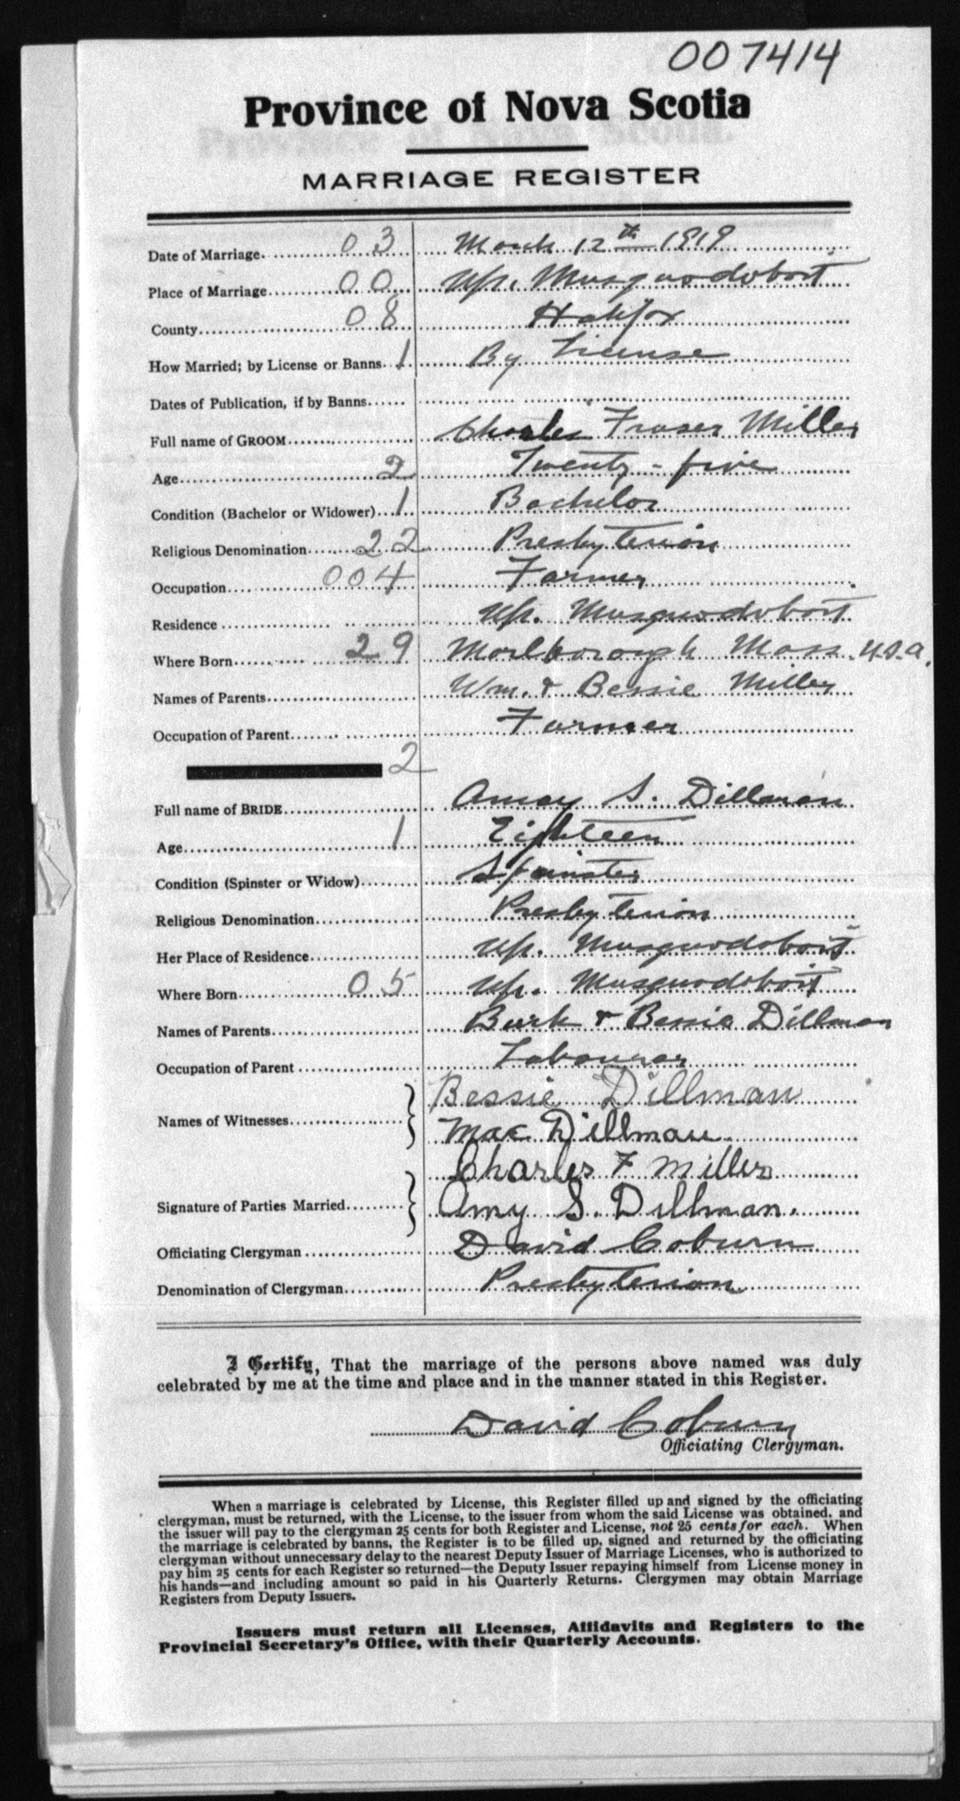 007414
Province of Nova Scotia
MARRIAGE REGISTER
Date of Marriage. 03 March 12th 1919
Place of Marriage 00 Up. Musquodoboit
County 08 Halifax
How Married; by License or Banns 1 By License
Dates of Publication, if by Banns
Full name of GROOM Charles Fraser Miller
Age 2 Twenty-five
Condition (Bachelor or Widower) 1 Bachelor
Religious Denomination 22 Presbyterian
Occupation 004 Farmer
Residence Up. Musquodoboit
Where Born 29 Marlborough Mass. U.S.A.
Names of Parents Wm. & Bessie Miller
Occupation of Parent Farmer
2
Full name of BRIDE Amay S. Dillman
Age 1 Eighteen
Condition (Spinster or Widow) Spinster
Religious Denomination Presbyterian
Her Place of Residence Up. Musquodoboit
Where Born 05 Up. Musquodoboit
Names of Parents Burk & Bessie Dillman
Occupation of Parent Labourer
Names of Witnesses Bessie Dillman
Max Dillman
Signature of Parties Married Charles F Miller
Amy S. Dillman.
Officiating Clergyman David Coburn
Denomination of Clergyman Presbyterian
I Certify, That the marriage of the persons above named was duly
celebrated by me at the time and place and in the manner stated in this Register.
David Coburn
Officiating Clergyman.
When a marriage is celebrated by License, this Register filled up and signed by the officiating
clergyman, must be returned, with the License, to the issuer from whom the said License was obtained, and
the issuer will pay to the clergyman 25 cents for both Register and License, not 25 cents for each. When
the marriage is celebrated by banns, the Register is to be filled up, signed and returned by the officiating
clergyman without unnecessary delay to the nearest Deputy Issuer of Marriage Licenses, who is authorized to
pay him 25 cents for each Register so returned—the Deputy Issuer repaying himself from License money in
his hands—and including amount so paid in his Quarterly Returns. Clergymen may obtain Marriage
Registers from Deputy Issuers.
Issuers must return all Licenses, Affidavits and Registers to the
Provincial Secretary's Office, with their Quarterly Accounts.